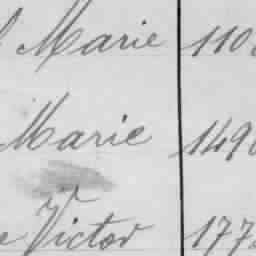 Marie 110
Marie 149
Victor 177